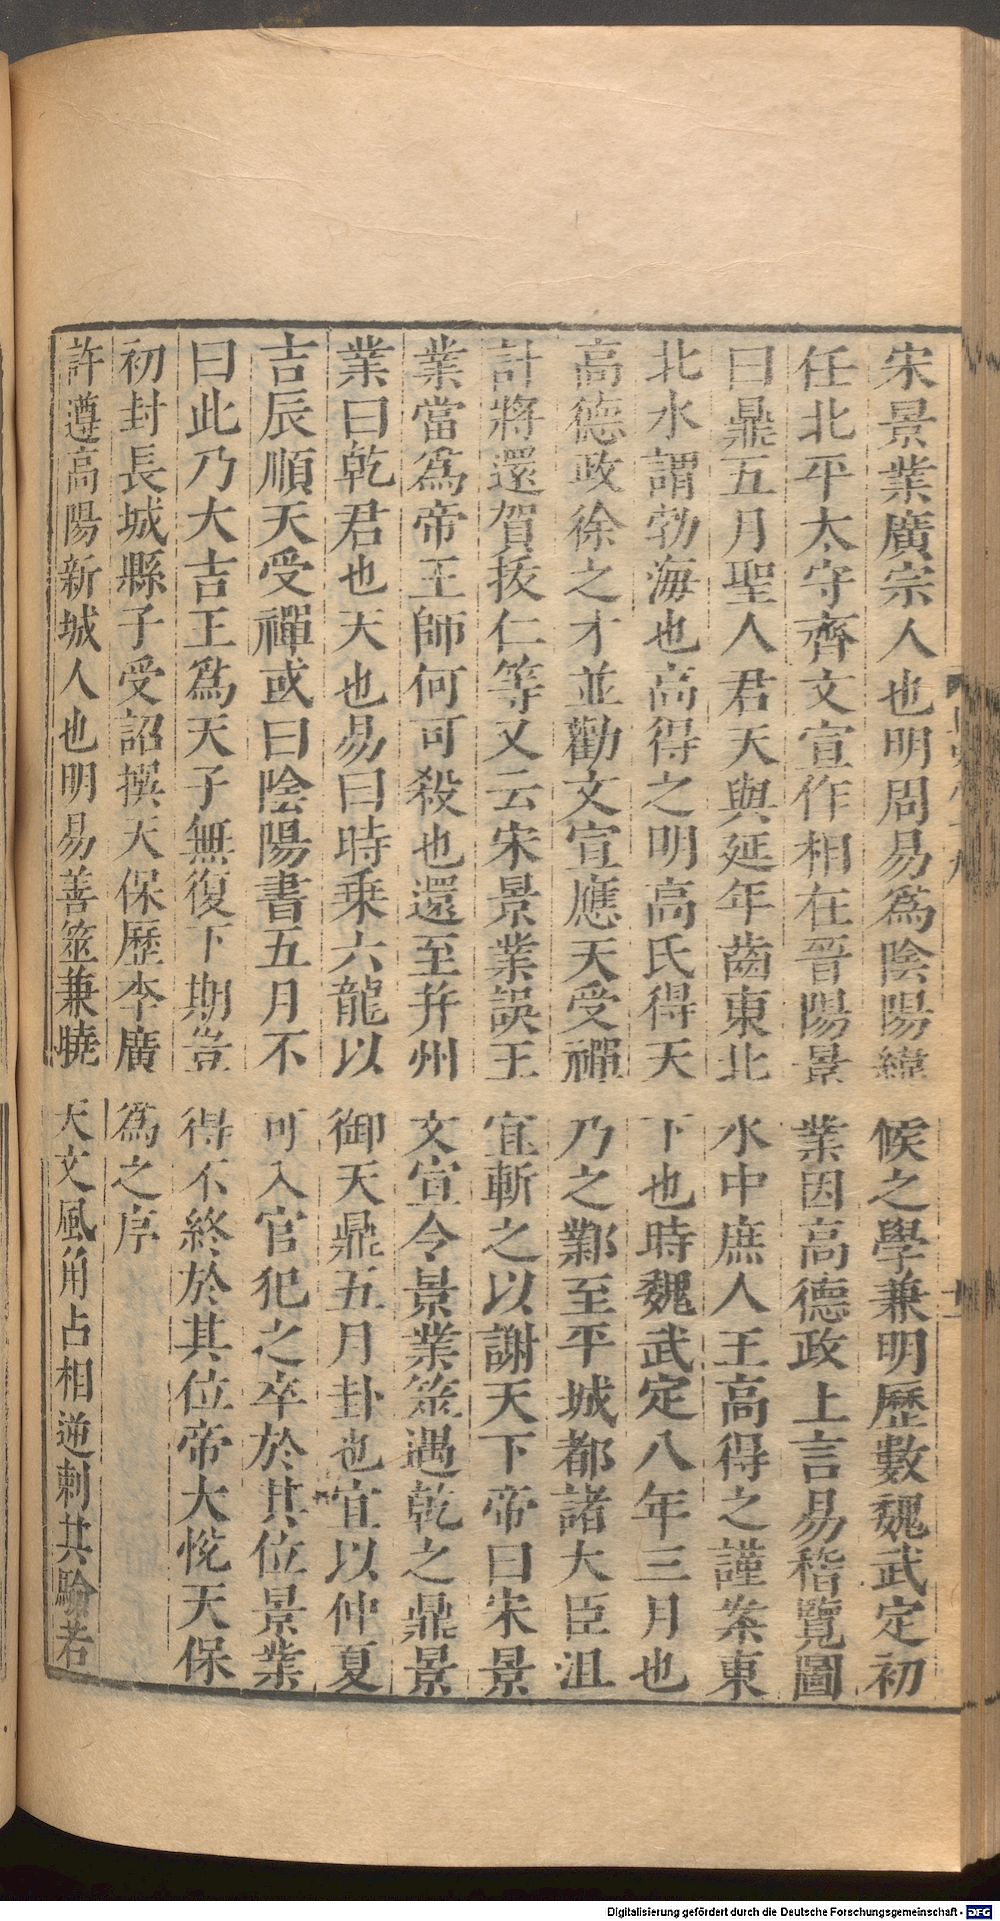 宋景業廣宗人也明周易爲陰陽緯候之學兼明歷數魏武定初
任北平太守齊文宣作相在晉陽景業因高德政上言易稽覽圖
曰鼎五月聖人君天與延年齒東北水中庶人王高得之謹案東
北水謂勃海也高得之明高氏得天下也時魏武定八年三月也
高德政徐之才並勸文宣應天受禪乃之鄴至平城都諸大臣沮
計將還賀拔仁等又云宋景業誤王宜斬之以謝天下帝曰宋景
業當爲帝王師何可殺也還至幷州文宣令景業筮遇乾之鼎景
業曰乾君也天也易曰時乗六龍以御天鼎五月卦也宜以仲夏
吉辰順天受禪或曰陰陽書五月不可入官犯之卒於其位景業
曰此乃大吉王爲天子無復下期豈得不終於其位帝大悅天保
初封長城縣子受詔撰天保歷李廣爲之序
許遵高陽新城人也明易善筮兼曉天文風角占相逆刺其驗若
Digitalisierung gefördert durch die Deutsche Forschungsgemeinschaft - DFG